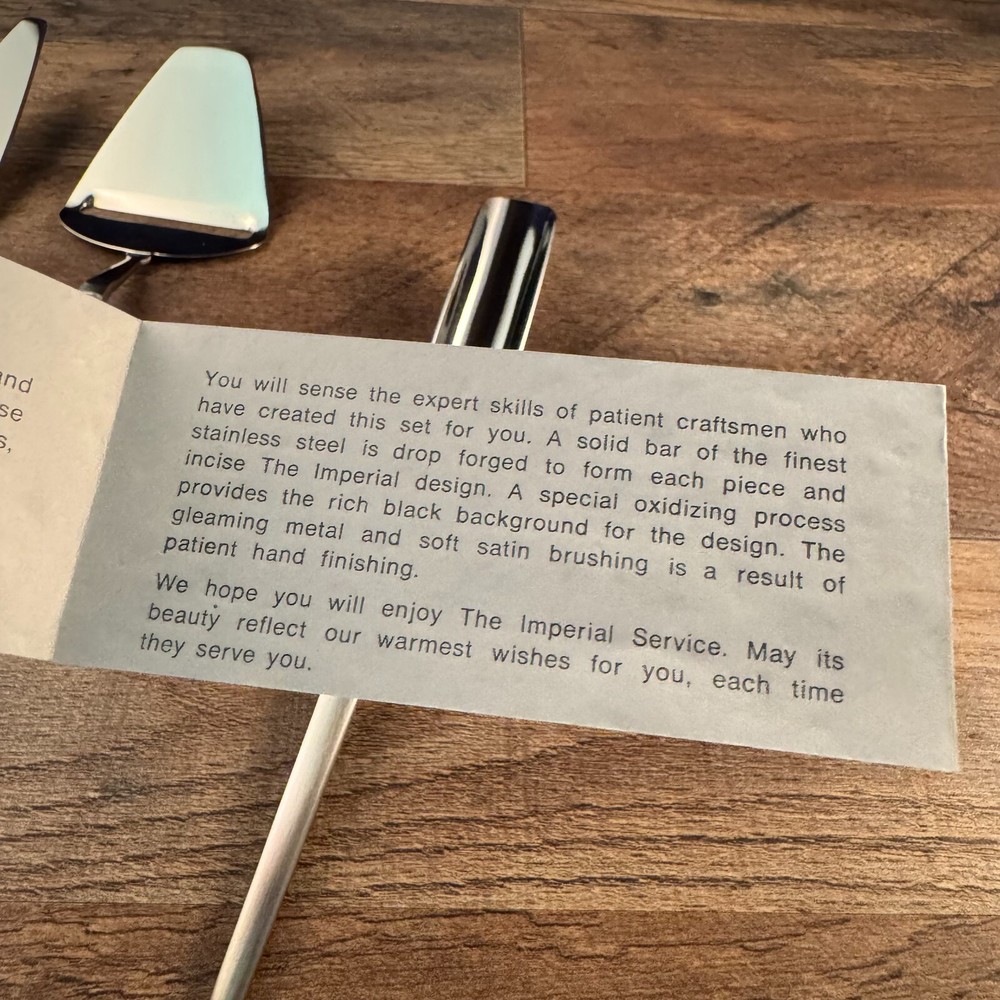 and
se
s,
You will sense the expert skills of patient craftsmen who
have created this set for you. A solid bar of the finest
stainless steel is drop forged to form each piece and
incise The Imperial design. A special oxidizing process
provides the rich black background for the design. The
gleaming metal and soft satin brushing is a result of
patient hand finishing.
We hope you will enjoy The Imperial Service. May its
beauty reflect our warmest wishes for you, each time
they serve you.